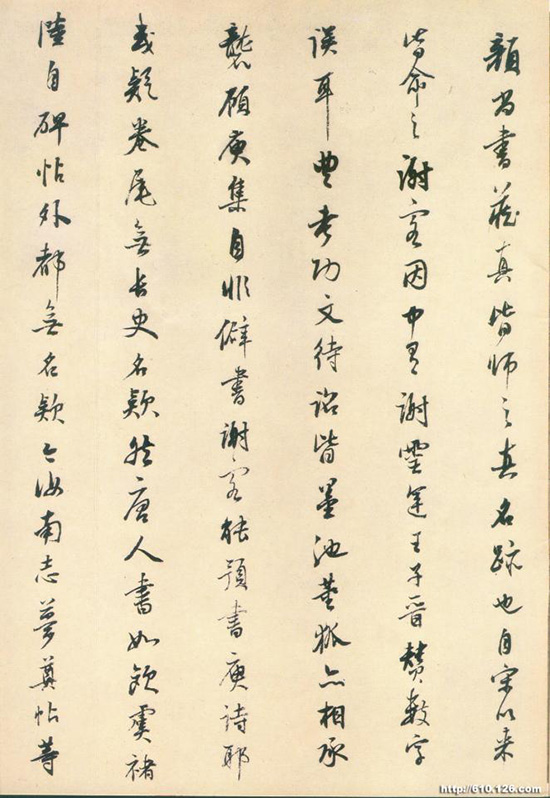 顏尚書藏真皆師之真名跡也自宋以來
皆命之謝客因中有謝靈運王子晉贊數字
誤耳豐考功文待詔皆墨池董狐亦相承
襲顧庾集自非僻書謝客能預書庾詩耶
或疑卷尾無長史名款然唐人書如歐虞褚
陸自碑帖外都無名款今汝南志夢奠帖等
http://610.126.com/